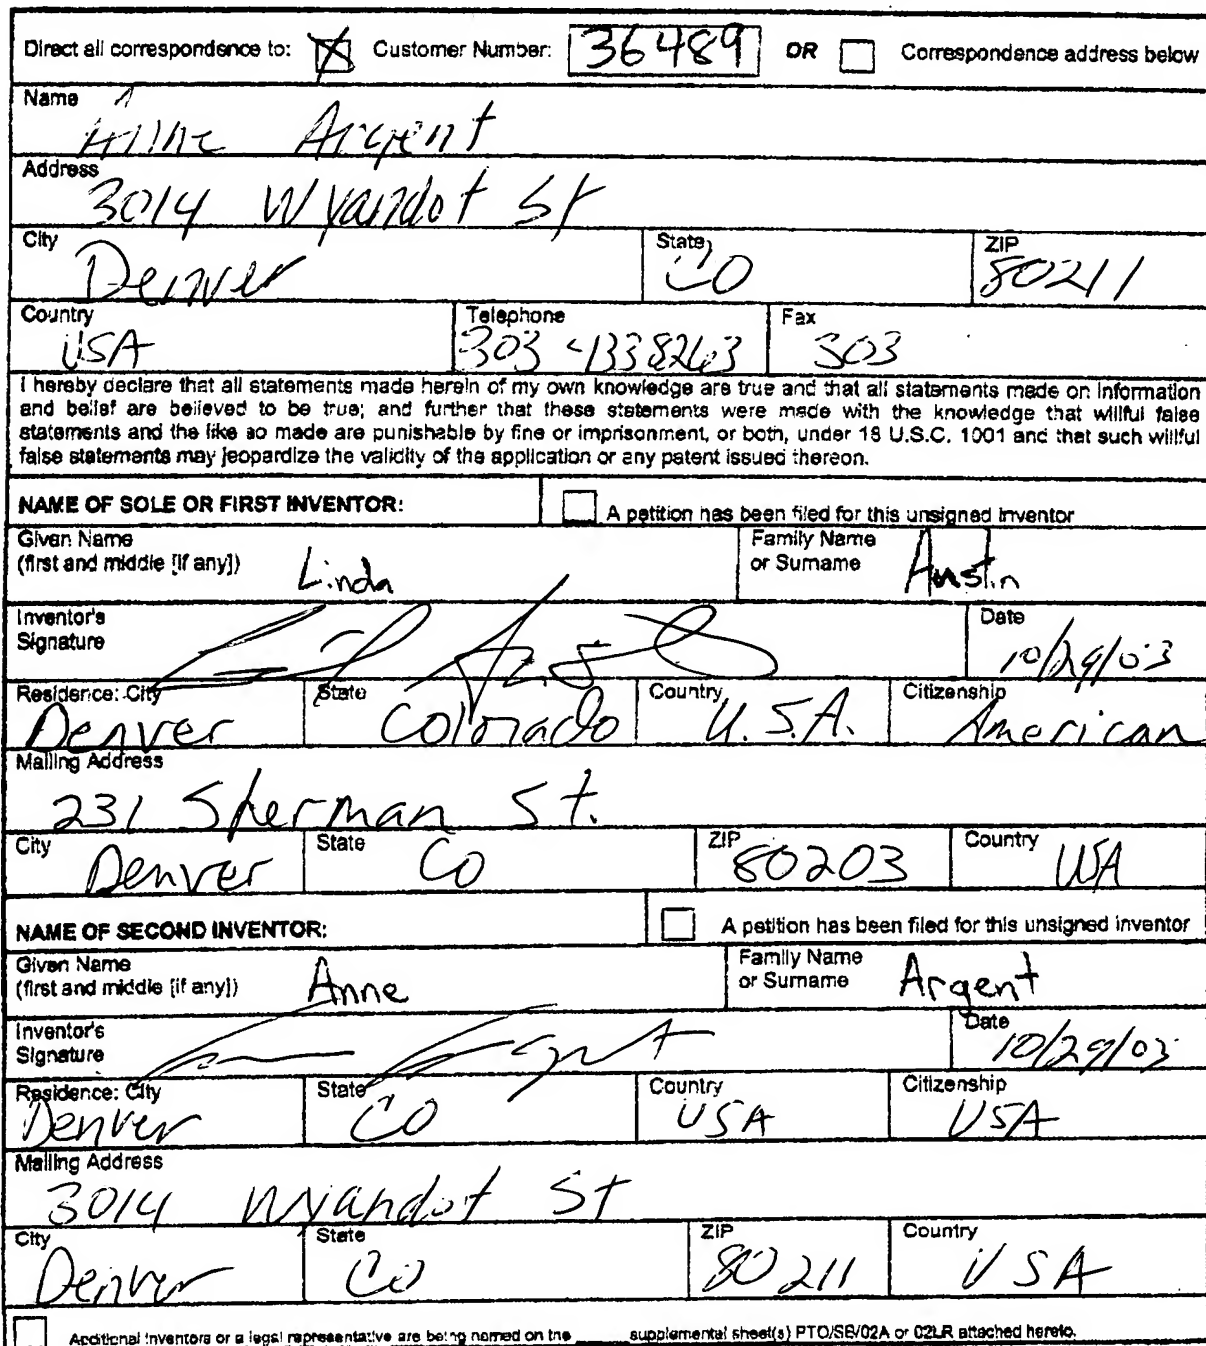 Direct all correspondence to: Customer Number: 36489 OR Correspondence address below
Name
Anne Argent
Address
3014 Wyandot St
City Denver State CO ZIP 80211
Country USA Telephone 303 4338263 Fax 303
I hereby declare that all statements made herein of my own knowledge are true and that all statements made on information
and belief are believed to be true; and further that these statements were made with the knowledge that willful false
statements and the like so made are punishable by fine or imprisonment, or both, under 18 U.S.C. 1001 and that such willful
false statements may jeopardize the validity of the application or any patent issued thereon.
NAME OF SOLE OR FIRST INVENTOR: A petition has been filed for this unsigned inventor
Given Name Family Name
(first and middle [if any]) Linda or Surname Austin
Inventor's Date
Signature 10/29/03
Residence: City State Country Citizenship
Denver Colorado U.S.A. American
Mailing Address
231 Sherman St.
City Denver State CO ZIP 80203 Country USA
NAME OF SECOND INVENTOR: A petition has been filed for this unsigned inventor
Given Name Family Name
(first and middle [if any]) Anne or Surname Argent
Inventor's Date
Signature 10/29/03
Residence: City State Country Citizenship
Denver CO USA USA
Mailing Address
3014 Wyandot St
City Denver State CO ZIP 80211 Country USA
Additional inventors or a legal representative are being named on the ____ supplemental sheet(s) PTO/SB/02A or 02LR attached hereto.